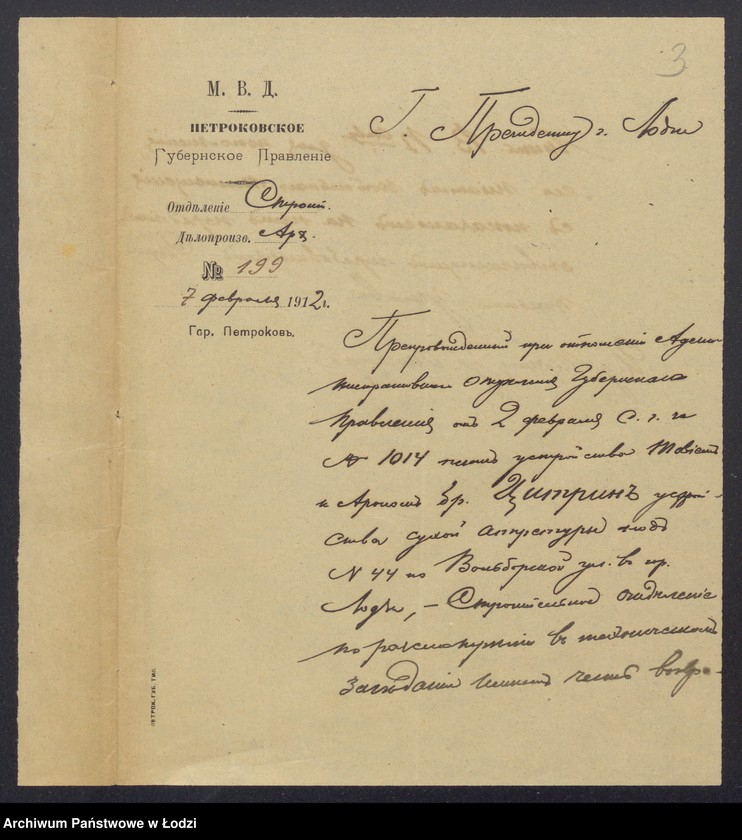 3
М. В. Д.
ПЕТРОКОВСКОЕ
Губернское Правленіе
Отдѣленіе Строит.
Дѣлопроизв. Арх.
№ 199
7 февраля 1912 г.
Гор. Петроковъ.
Г. Президенту г. Лодзи
Препровожденный при отношеніи Адми-
нистративнаго Отдѣленія Губернскаго
Правленія отъ 2 февраля с. г. за
№ 1014 планъ устройства
и Арономъ бр. Цитринъ устрой-
ства сухой аппретуры подъ
N 44 по Вольборской ул. въ гор.
Лодзи, – Строительное Отдѣленіе
по разсмотрѣніи въ техническомъ
засѣданіи имѣетъ честь возвра-
ПЕТРОК. ГУБ. ТИП.
Archiwum Państwowe w Łodzi